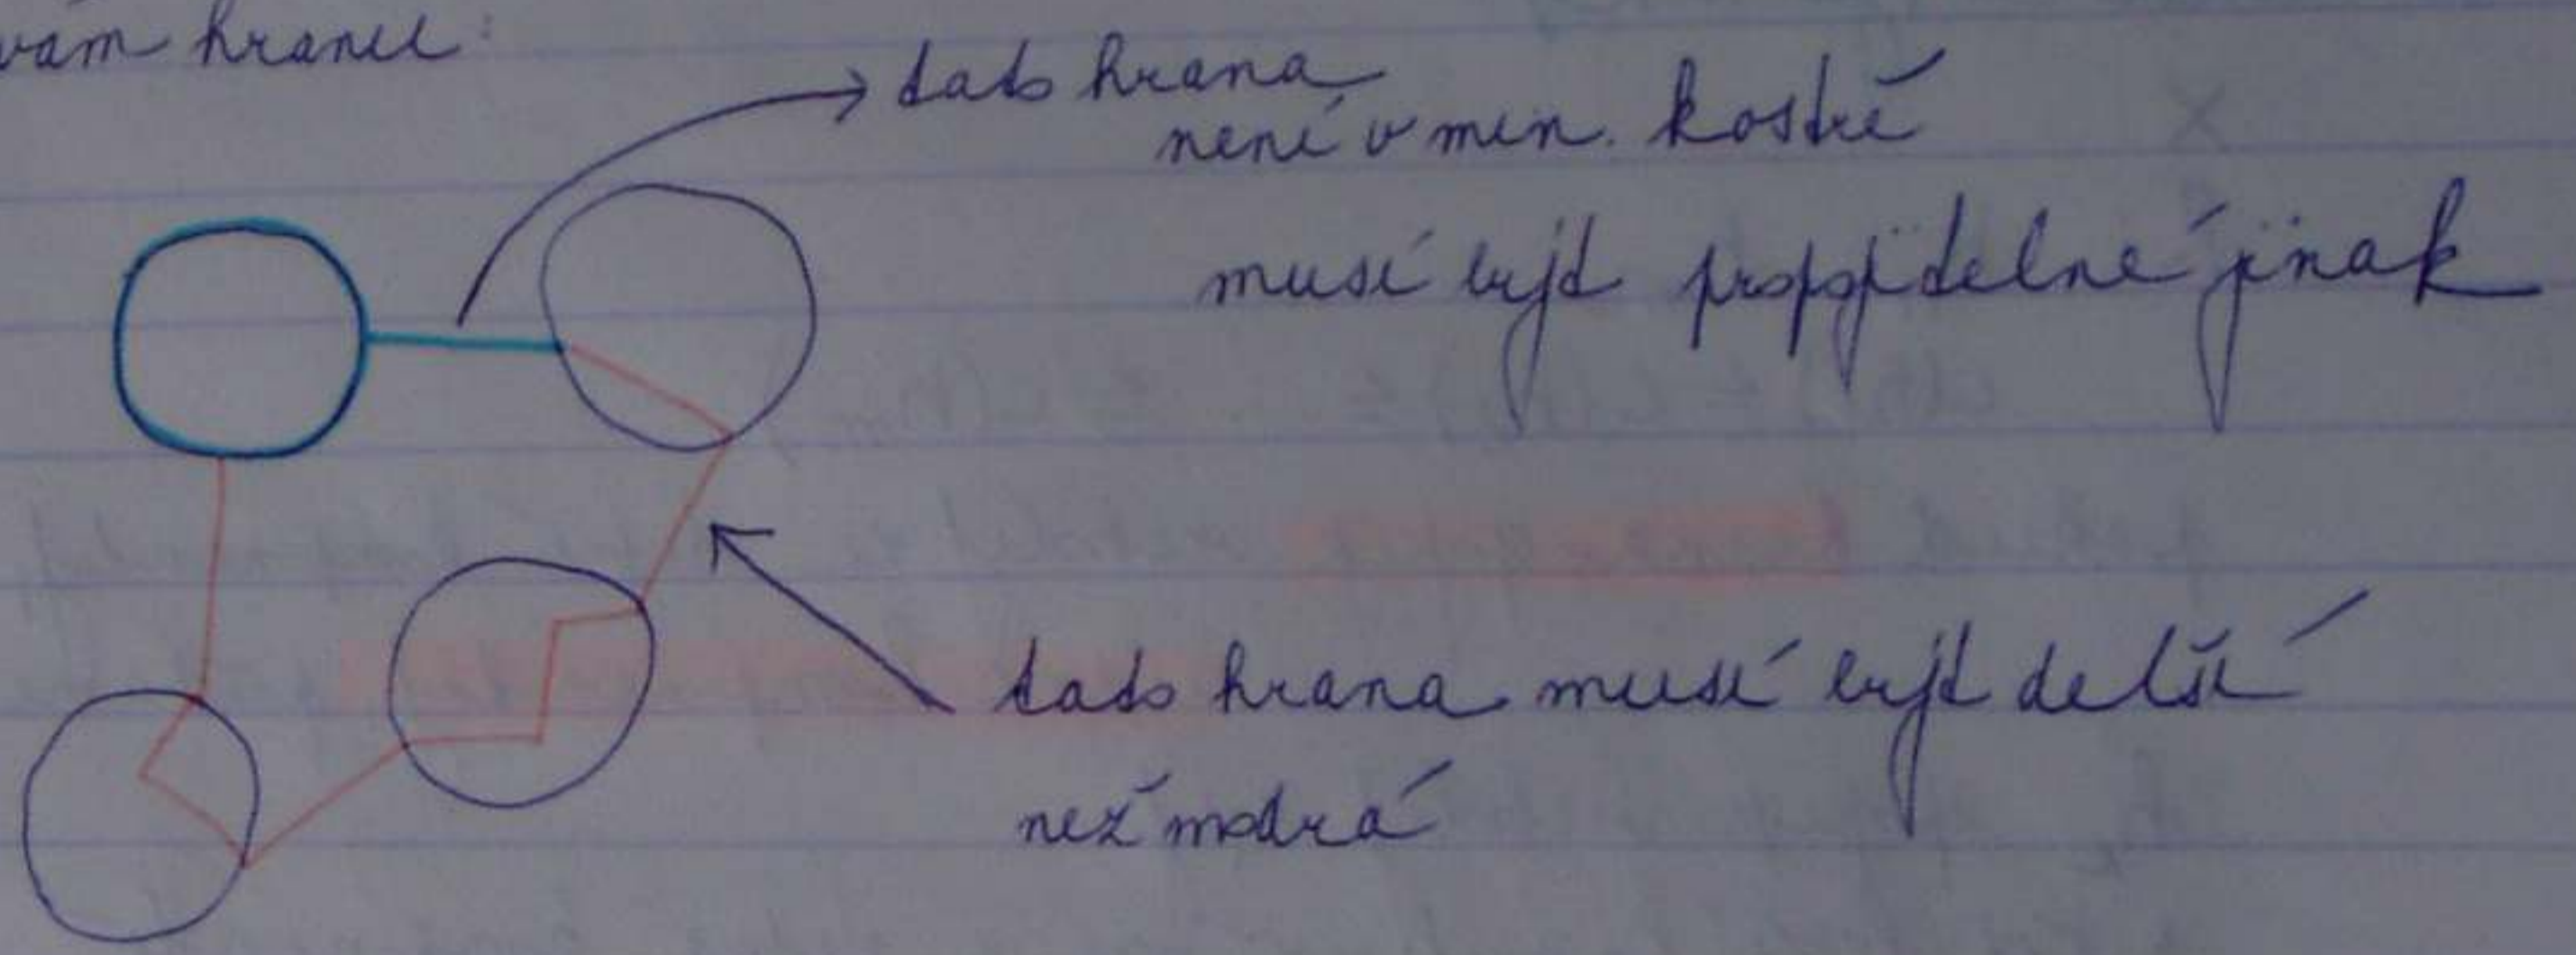 vám hranu:
tato hrana
není v min. kostře
musí být propojitelné jinak
tato hrana musí být delší
než modrá